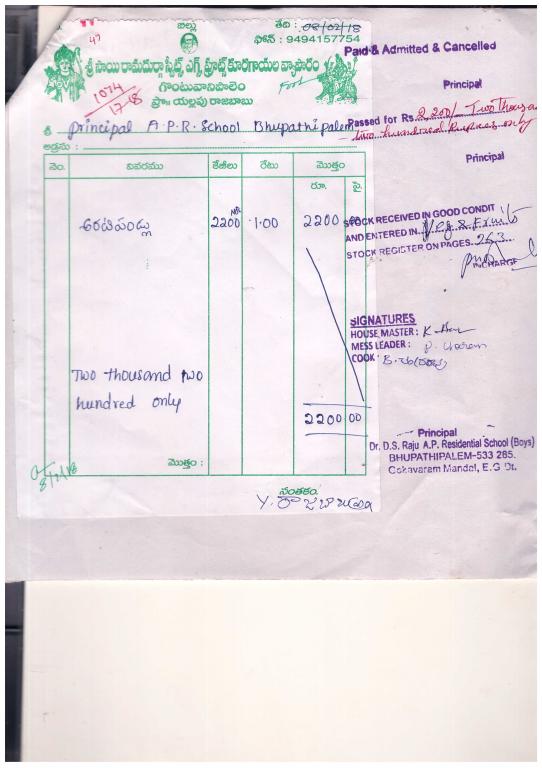 బిల్లు
తేది : 08/02/18
ఫోన్ : 9494157754
47
శ్రీ సాయి రామదుర్గా స్వీట్స్ ఎగ్స్ ఫ్రూట్స్ కూరగాయల వ్యాపారం
గొంటువానిపాలెం
ప్రొ॥ యల్లపు రాజబాబు
1074
17-18
శ్రీ Principal A.P.R. School Bhupathipalem
అడ్రసు :
నెం. వివరము కేజీలు రేటు మొత్తం
రూ. పై.
అరటిపండ్లు 2200 1.00 2200 00
Two thousand two
hundred only
2200 00
మొత్తం :
8/2/18
సంతకం
Y. రాజబాబు
Paid & Admitted & Cancelled
Principal
Passed for Rs. 2,200/- Two Thousand
two hundred Rupees only
Principal
STOCK RECEIVED IN GOOD CONDIT
AND ENTERED IN Veg & Fruits
STOCK REGISTER ON PAGES 263
INCHARGE
SIGNATURES
HOUSE MASTER :
MESS LEADER :
COOK :
Principal
Dr. D.S. Raju A.P. Residential School (Boys)
BHUPATHIPALEM-533 285.
Gokavaram Mandal, E.G Dt.